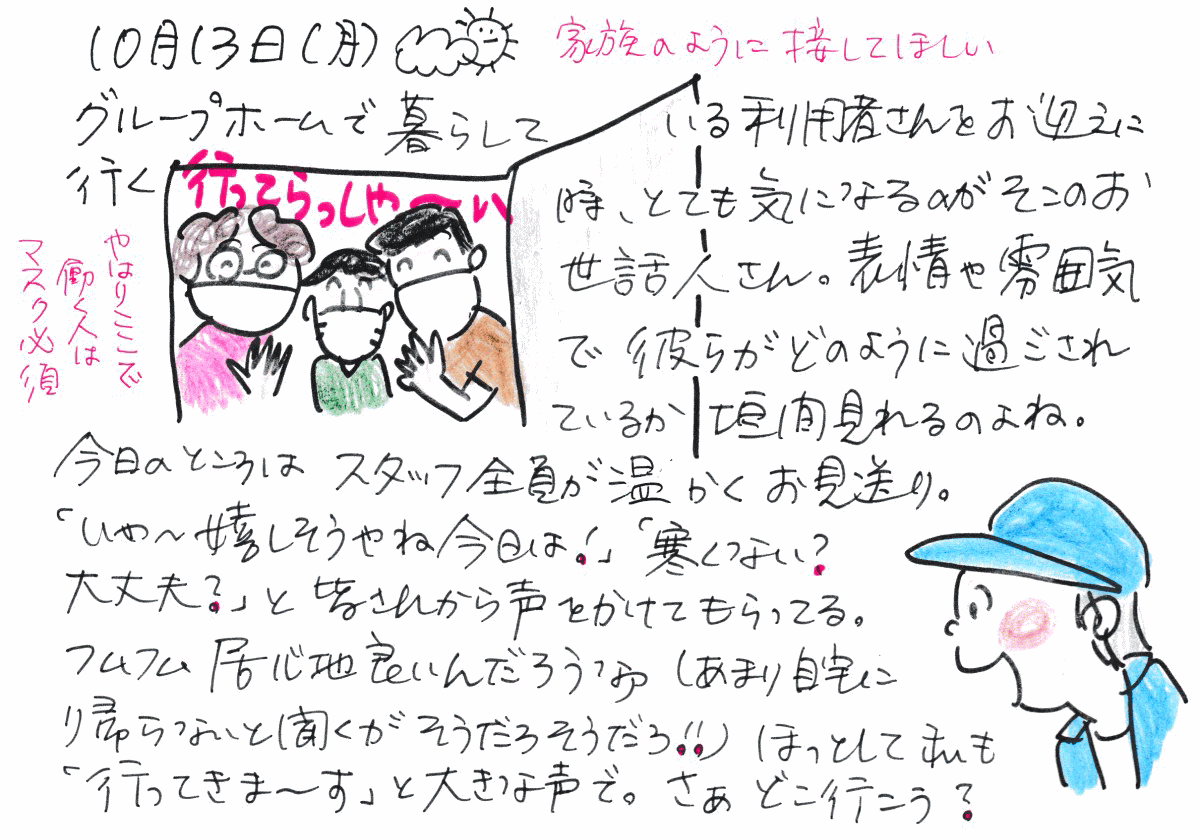 10月13日(月)
家族のように接してほしい
グループホームで暮らして いる利用者さんをお迎えに
行く 時、とても気になるのがそこのお
行ってらっしゃ〜い
やはりここで
働く人は
マスク必須
世話人さん。表情や雰囲気
で彼らがどのように過ごされ
ているか垣間見れるのよね。
今日のところはスタッフ全員が温かくお見送り。
「いや〜嬉しそうやね今日は!」「寒くない?
大丈夫?」と皆さんから声をかけてもらってる。
フムフム居心地良いんだろうなぁ(あまり自宅に
帰らないと聞くがそうだろそうだろ!!)ほっとして私も
「行ってきま〜す」と大きな声で。さぁどこ行こう?